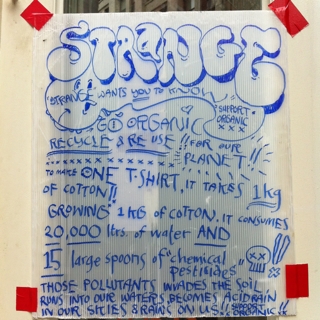 STRANGE
STRANGE WANTS YOU TO KNOW
SUPPORT
ORGANIC
XXX
GO ORGANIC
RECYCLE & RE USE!! FOR OUR
PLANET!!
TO MAKE ONE T-SHIRT, IT TAKES 1kg
OF COTTON!!
GROWING 1KG OF COTTON, IT CONSUMES
20,000 ltrs. of water AND
15 large spoons of "chemical
pesticides" !!
THOSE POLLUTANTS INVADES THE SOIL
RUNS INTO OUR WATERS, BECOMES ACID RAIN
IN OUR SITIES & RAINS ON US!! SUPPORT
ORGANIC!!